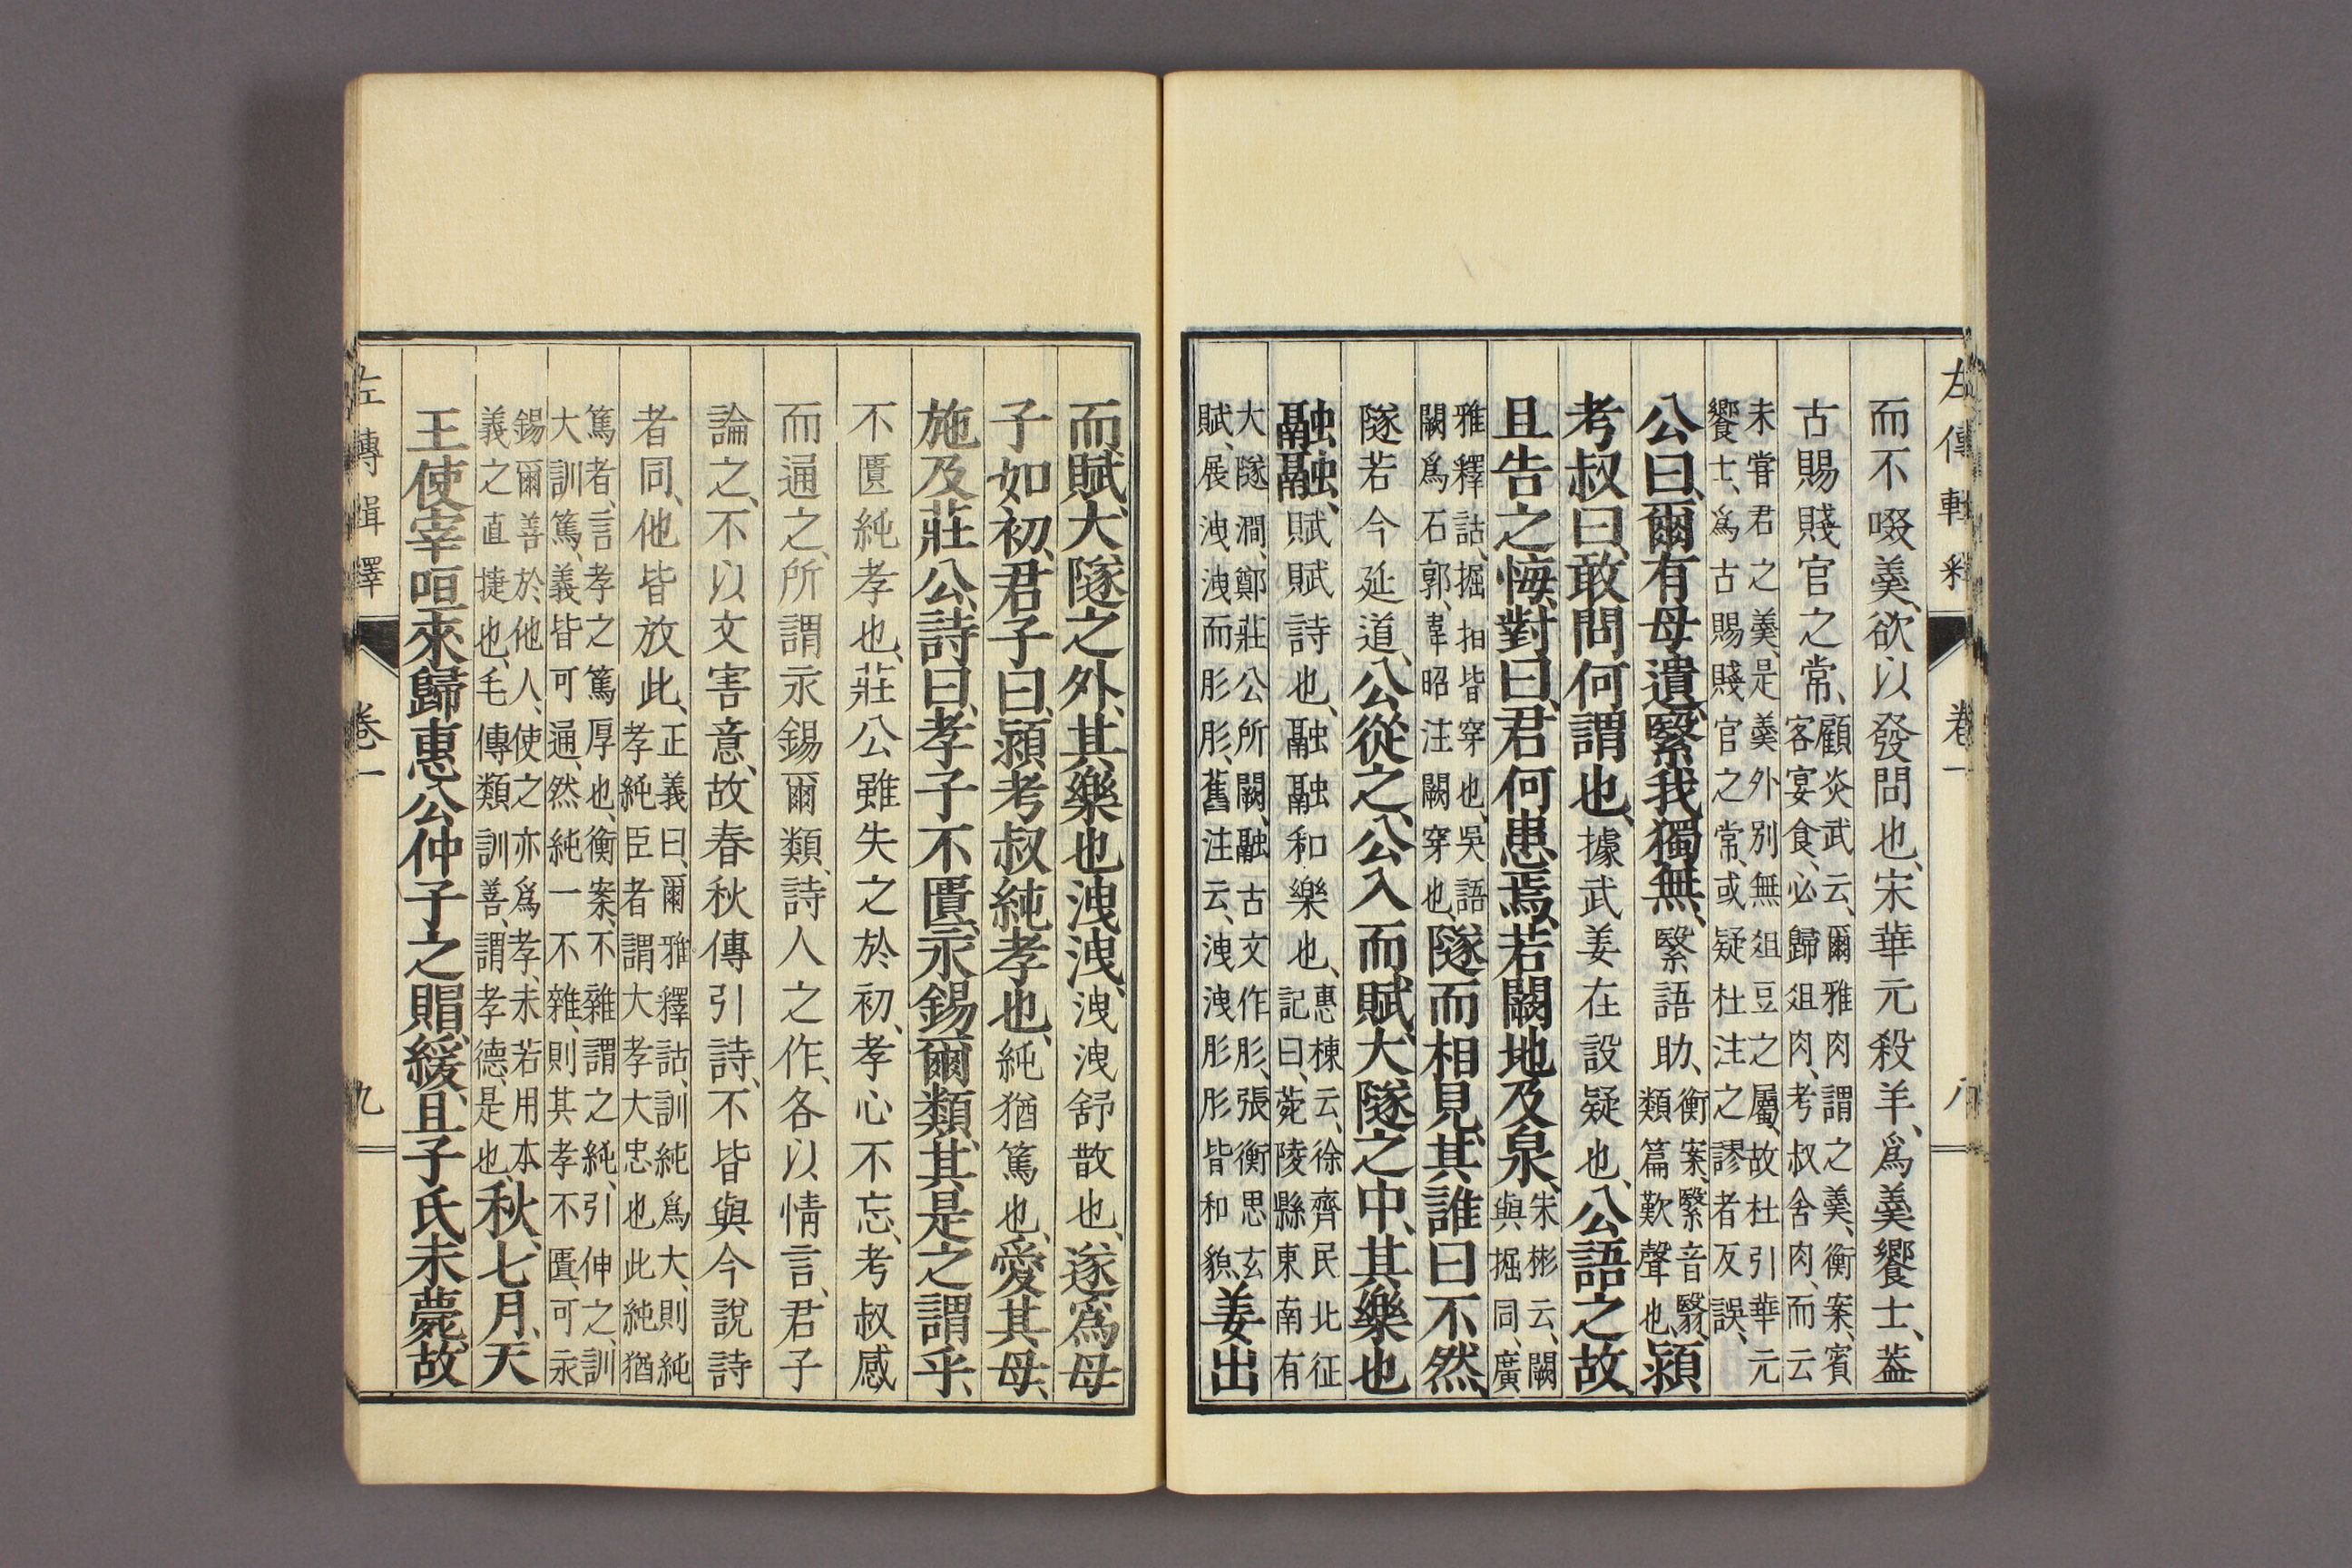 左傳輯釋 卷一 八
而不啜羹、欲以發問也、宋華元殺羊、爲羹饗士、葢
古賜賤官之常、顧炎武云、爾雅肉謂之羹、衡案、賓
客宴食、必歸俎肉、考叔舍肉、而云
未甞君之羹、是羹外別無俎豆之屬、故杜引華元
饗士、爲古賜賤官之常、或疑杜注之謬者反誤、
公曰、爾有母遺、繄我獨無、繄語助、衡案、繄音翳、
類篇歎聲也、潁
考叔曰、敢問何謂也、據武姜在設疑也、公語之故、
且告之悔、對曰、君何患焉、若闕地及泉、朱彬云、闕
與掘同、廣
雅釋詁、掘皆穿也、吳語
闕爲石郭、韋昭注闕、穿也、隧而相見、其誰曰不然、
隧若今延道、公從之、公入而賦、大隧之中、其樂也
融融、賦賦詩也、融融和樂也、惠棟云、徐齊民北征
記曰、菀陵縣東南有
大隧澗、鄭莊公所闕、融古文作肜、張衡思玄
賦、展洩洩而肜肜、舊注云、洩洩肜肜皆和貌、姜出
而賦、大隧之外、其樂也洩洩、洩洩舒散也、遂爲母
子如初、君子曰、潁考叔純孝也、純猶篤也、愛其母、
施及莊公、詩曰、孝子不匱、永錫爾類、其是之謂乎、
不匱純孝也、莊公雖失之於初、孝心不忘、考叔感
而通之、所謂永錫爾類、詩人之作、各以情言、君子
論之、不以文害意、故春秋傳引詩、不皆與今說詩
者同、他皆放此、正義曰、爾雅釋詁、訓純爲大、則純
孝純臣者、謂大孝大忠也、此純猶
篤者、言孝之篤厚也、衡案、不雜謂之純、引伸之、訓
大訓篤、義皆可通、然純一不雜、則其孝不匱、可永
錫爾善於他人、使之亦爲孝、未若用本
義之直捷也、毛傳類訓善、謂孝德、是也、秋、七月、天
王使宰咺來歸惠公仲子之賵、緩、且子氏未薨、故
左傳輯釋 卷一 九